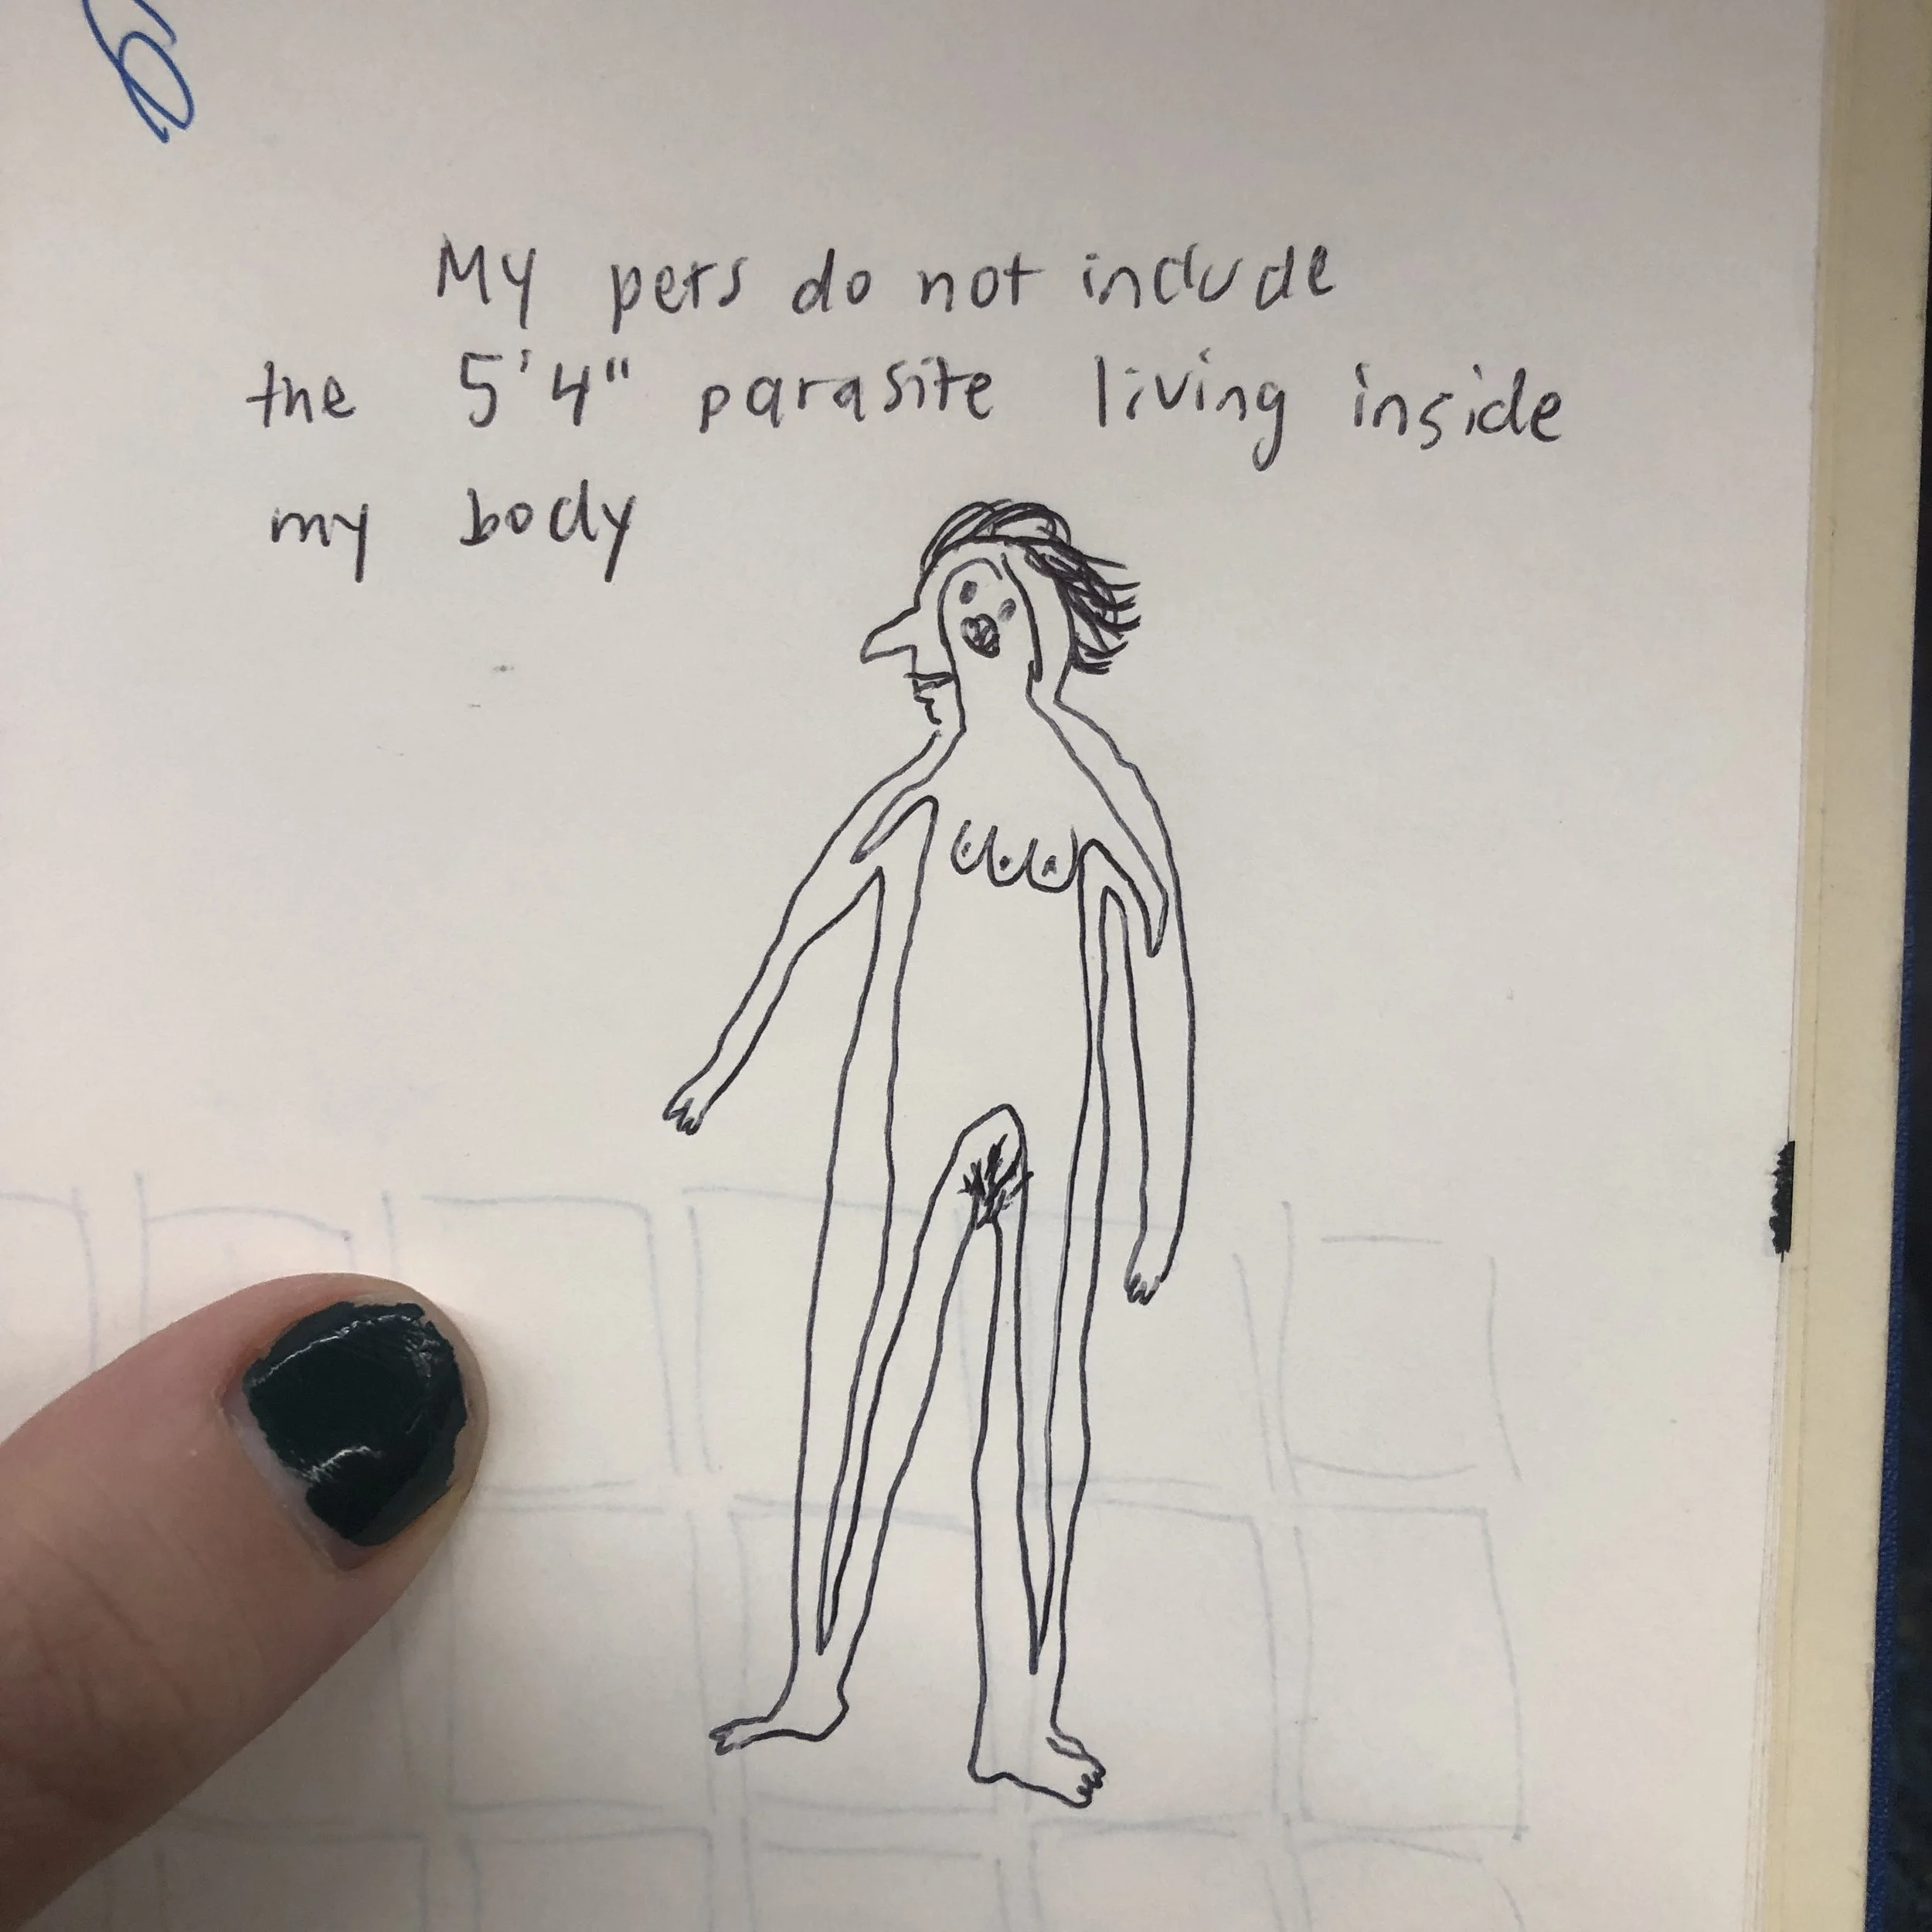 My pets do not include
the 5'4" parasite living inside
my body